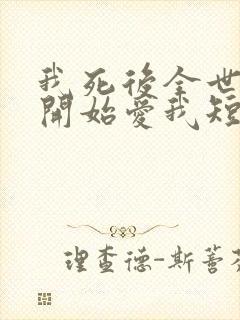 我死後全世
開始愛我短
理查德-斯蒼